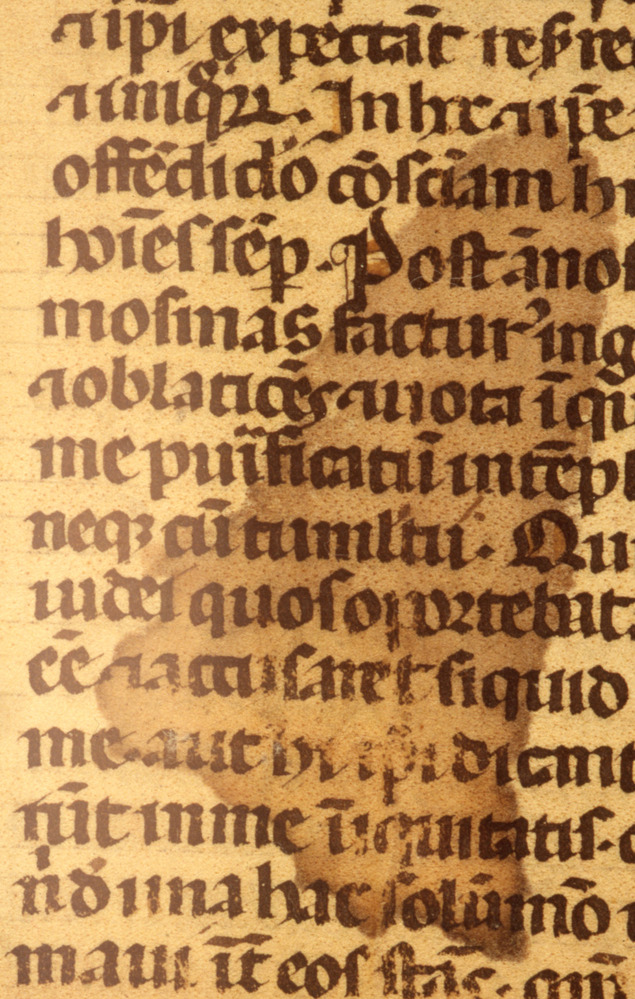 ⁊ ip̄i expectāt resɾre
⁊ iniqꝛꝝ. In hoc ⁊ ip̄e
offēdic̄lo cōsciām h
hoīes sēp. Post ānos
mosinas factur᾽ ing
⁊ oblatiōes ⁊ uota ī qu
me puīficatū in tēpl
neqꝫ cū tumltu. Qui
iudei quos oportebat
eē̄ ⁊ accusare siquid
me. aut hi ip̄i dicant
rūt in me īiquitatis. c
n̄ d̄ una hac solūmō
maui īt eos stās. qm̄